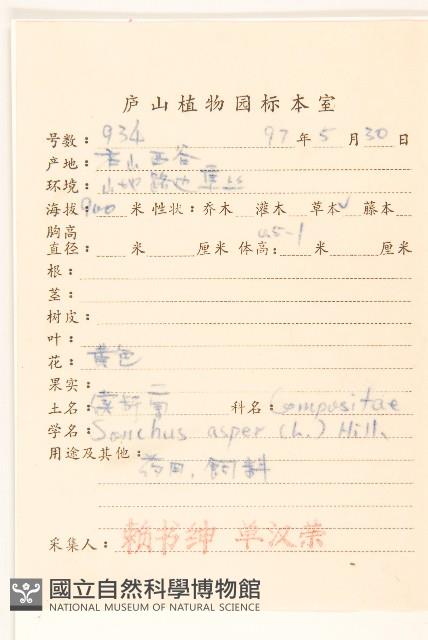 庐山植物园标本室
号数：934 97年5月30日
产地：
环境：山地路边草丛
海拔：900米 性状：乔木 灌木 草本✓ 藤本
胸高
直径： 米 厘米 体高：0.5-1米 厘米
根：
茎：
树皮：
叶：
花：黄色
果实：
土名： 科名：Compositae
学名：Sonchus asper (L.) Hill.
用途及其他：药用，饲料
采集人：赖书绅 单汉荣
國立自然科學博物館
NATIONAL MUSEUM OF NATURAL SCIENCE